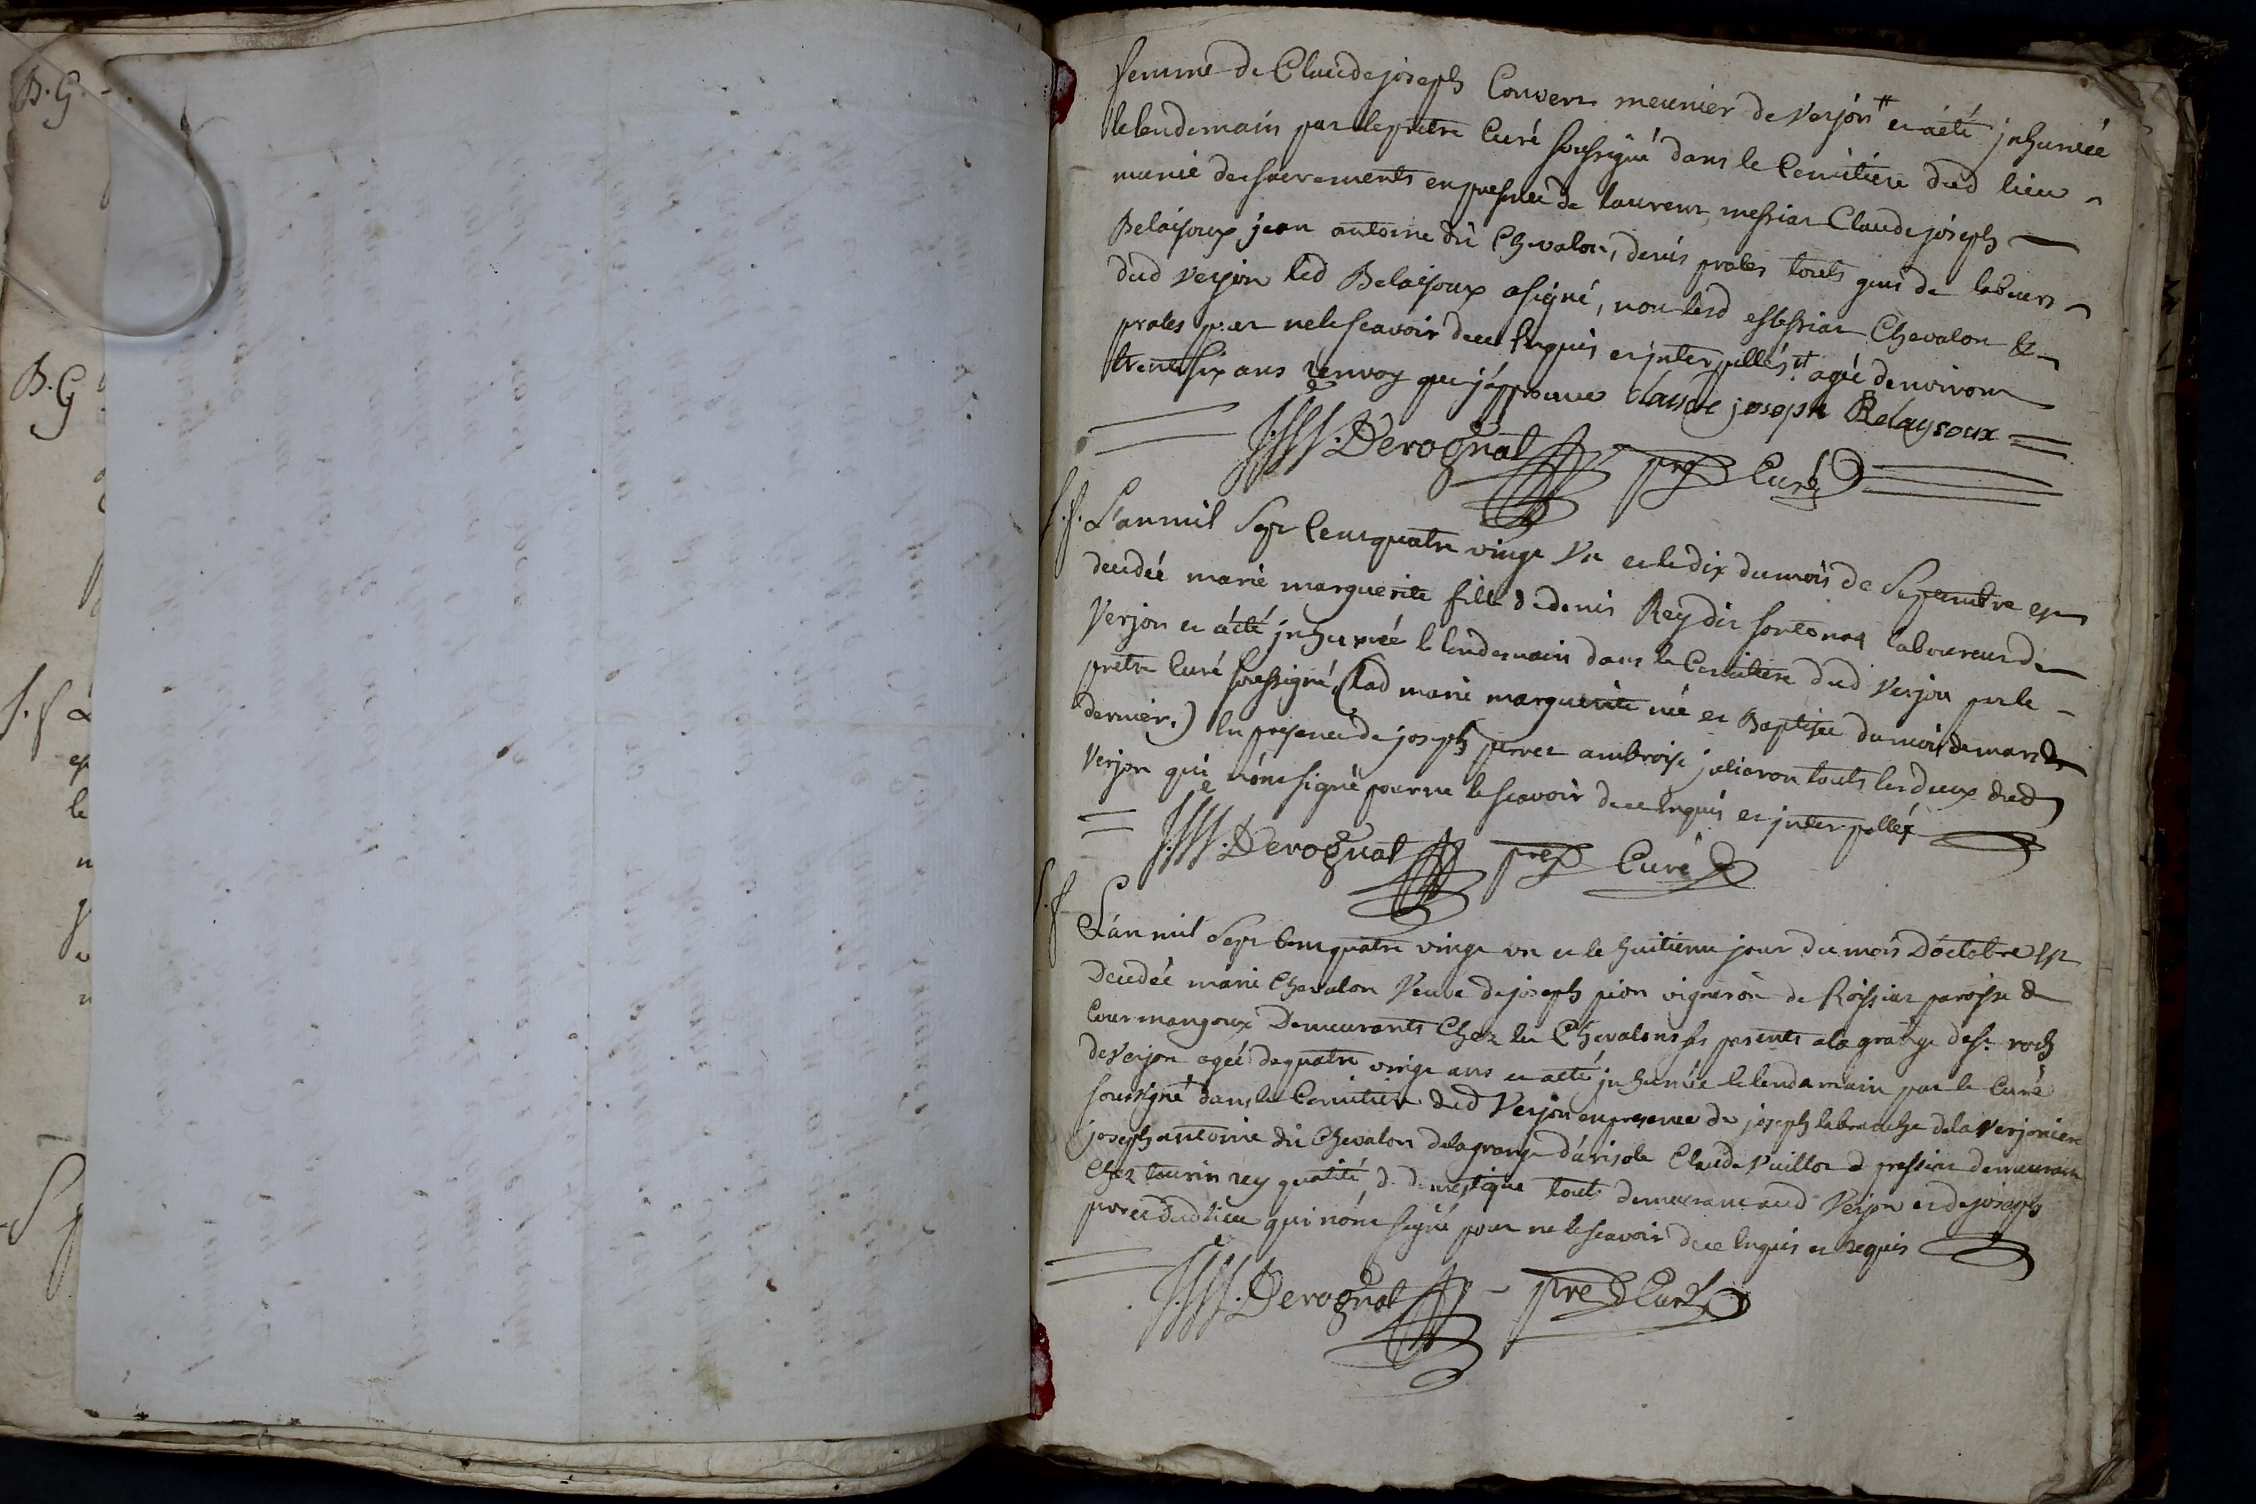 B. G.
B. G
S. f
femme de Claude joseph Convers meunier de Verjon # et a été jnhumée
le lendemain par le prêtre Curé soussigné dans le Cemitiere dud lieu
munie des sacrements en presence de laurent messiat Claude joseph
Belaysoux jean antoine dit Chevalon, denis prales touts gens de labeurs
dud verjon led Belaysoux a signé, non lesd Messiat Chevalon &
prales pour ne le scavoir de ce Enquis et jnterpellés. # agée denviron
trente six ans renvoy que j'approuve claude joseph Belaysoux
Derognat pre Curé
S. f. L'an mil Sept Cent quatre vingt Un et le dix du mois de Septembre est
decedée marie marguerite fille de denis Rey dit laboureur de
Verjon et a été jnhumée le lendemain dans le Cemitiere dud Verjon par le
prêtre Curé soussigné, (lad marie marguerite née et Baptisée du mois de mars
dernier.) En presence de joseph perret ambroise joliaron touts les deux dud
Verjon qui n'ont signé pour ne le scavoir de ce Enquis et jnterpellés
Derognat pre Curé
S. f
L'an mil Sept Cent quatre vingt un et le huitieme jour du mois D'octobre Est
Decedée marie Chevalon Veuve de joseph pion vigneron de Roissiat paroisse de
Courmangoux Demeurante Chez les Chevalons ses parents a la grange de St. roch
de Verjon agée de quatre vingt ans et a été jnhumée le lendemain par le Curé
soussigné dans le Cemitiere dud Verjon en presence de joseph labranche de la Verjoniere
joseph antoine dit Chevalon de la grange Claude Vuillot de pressiat demeurant
Chez rey qualité de domestique touts demeurant aud Verjon et de joseph
dud lieu qui n'ont signé pour ne le scavoir de ce Enquis et Requis
Derognat pre Curé